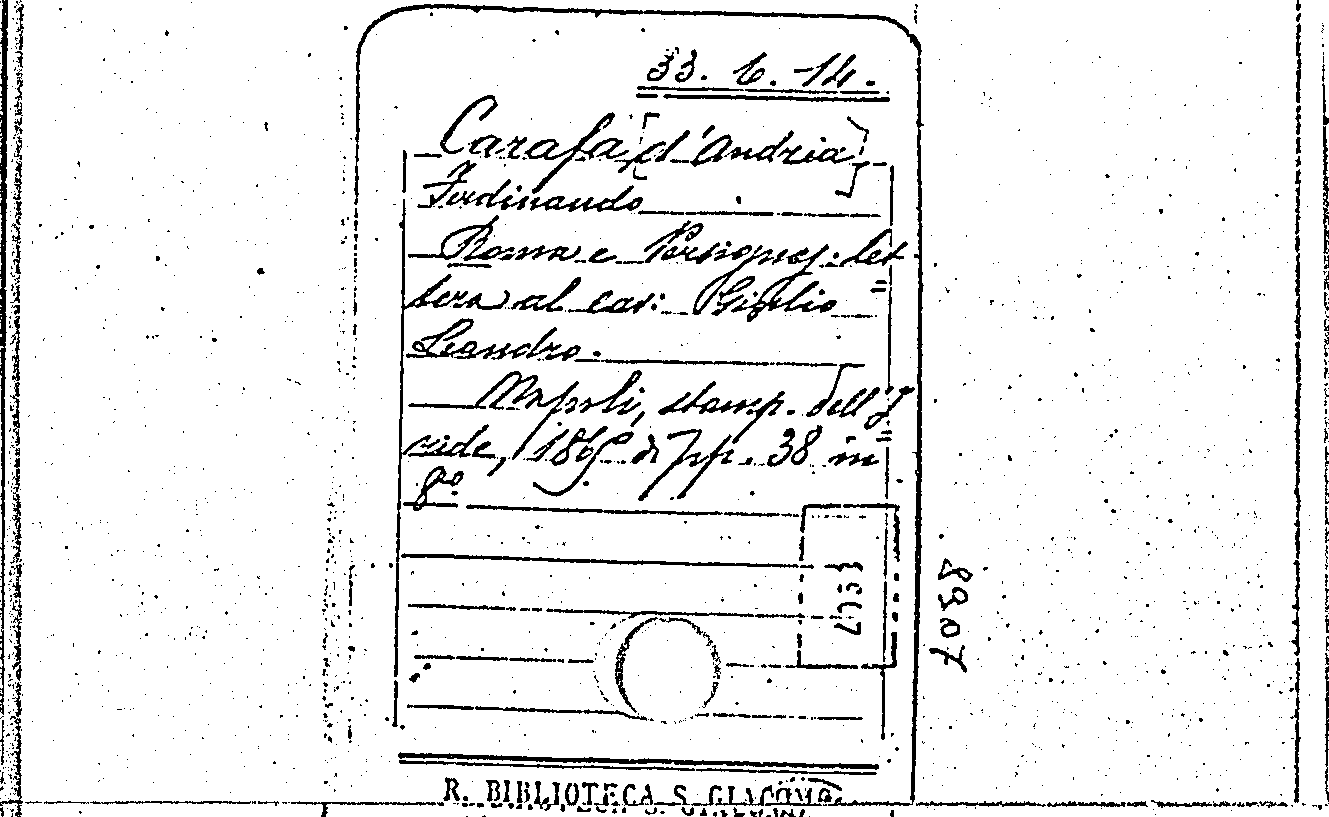 33. 6. 14.
Carafa [d'Andria]
Ferdinando
Roma e Persigny: let=
tera al cav: Giulio
Leandro.
Napoli, stamp. dell'I=
ride, 186 di pp. 38 in
8º
8307
R. BIBLIOTECA S. GIACOMO